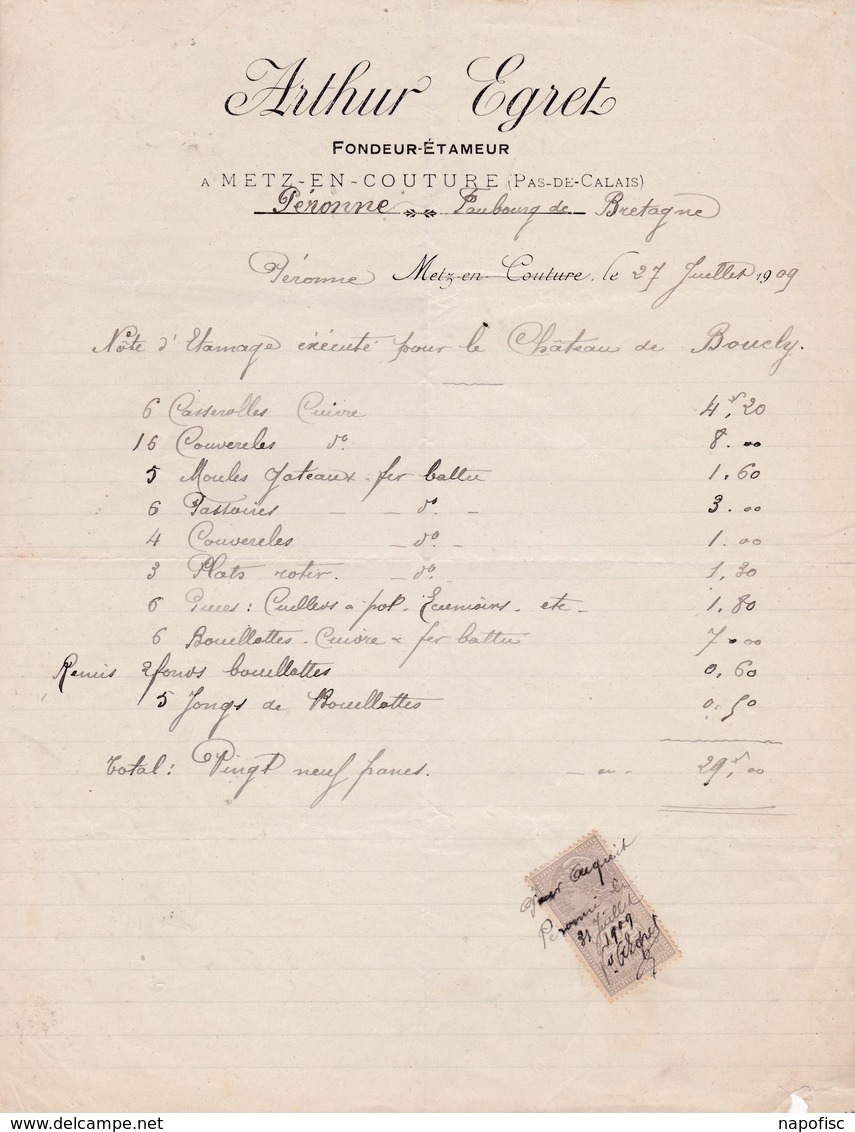 Arthur Egret
FONDEUR-ÉTAMEUR
A METZ-EN-COUTURE (PAS-DE-CALAIS)
Péronne Faubourg de Bretagne
Péronne Metz-en-Couture, le 27 Juillet 1909
Nôte d'Etamage éxécuté pour le Château de Boucly.
6 Casserolles Cuivre 4f,20
16 Couvercles do. 8.00
5 Moules gateaux fer battu 1.60
6 Passoires — — do. — 3.00
4 Couvercles — do. — 1.00
3 Plats rotir. — do. 1,30
6 Pieces: Cuellers a pot - Ecumoirs - etc - 1.80
6 Bouillottes - Cuivre & fer battu 7.00
Remis 2 fonds bouillottes 0,60
5 Jongs de Bouillottes 0.50
Total: Vingt neuf francs. — " — 29f,00
Pour Acquit
Peronne le
31 Juillet
1909
napofisc